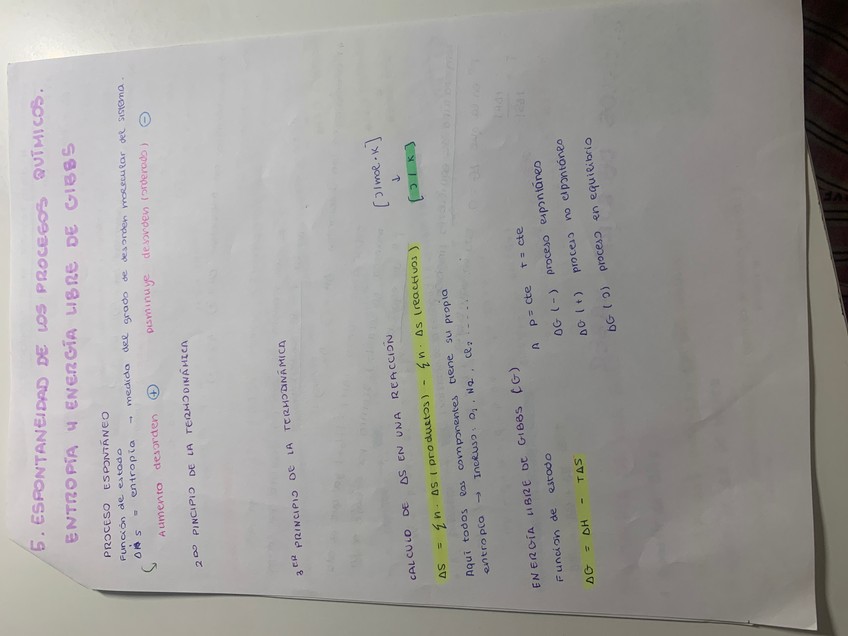 5. ESPONTANEIDAD DE LOS PROCESOS QUÍMICOS.
ENTROPÍA Y ENERGÍA LIBRE DE GIBBS
PROCESO ESPONTÁNEO
Función de estado
S = entropía → medida del grado de desorden molecular del sistema.
Aumento desorden + Disminuye desorden (ordenado) -
2DO PINCIPIO DE LA TERMODINÁMICA
3ER PRINCIPIO DE LA TERMODINÁMICA
CALCULO DE ΔS EN UNA REACCIÓN [J/mol·K]
↓
ΔS = ξn·ΔS (productos) - ξn·ΔS (reactivos) [J/K]
Aquí todos los componentes tiene su propia
entropía → Incluso: O₂, N₂, Cl₂ .....
ENERGÍA LIBRE DE GIBBS (G) A P=cte T=cte
Función de estado ΔG (-) proceso espontáneo
ΔG (+) proceso no espontáneo
ΔG = ΔH - TΔS ΔG (0) proceso en equilibrio